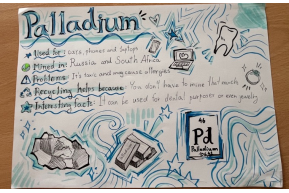 Palladium
Used for: cars, phones and laptops
Mined in: Russia and South Africa
Problems: It's toxic and may cause allergies
Recycling helps because: You don't have to mine that much
Interesting facts: It can be used for dental purposes or even jewelry
46
Pd
Palladium